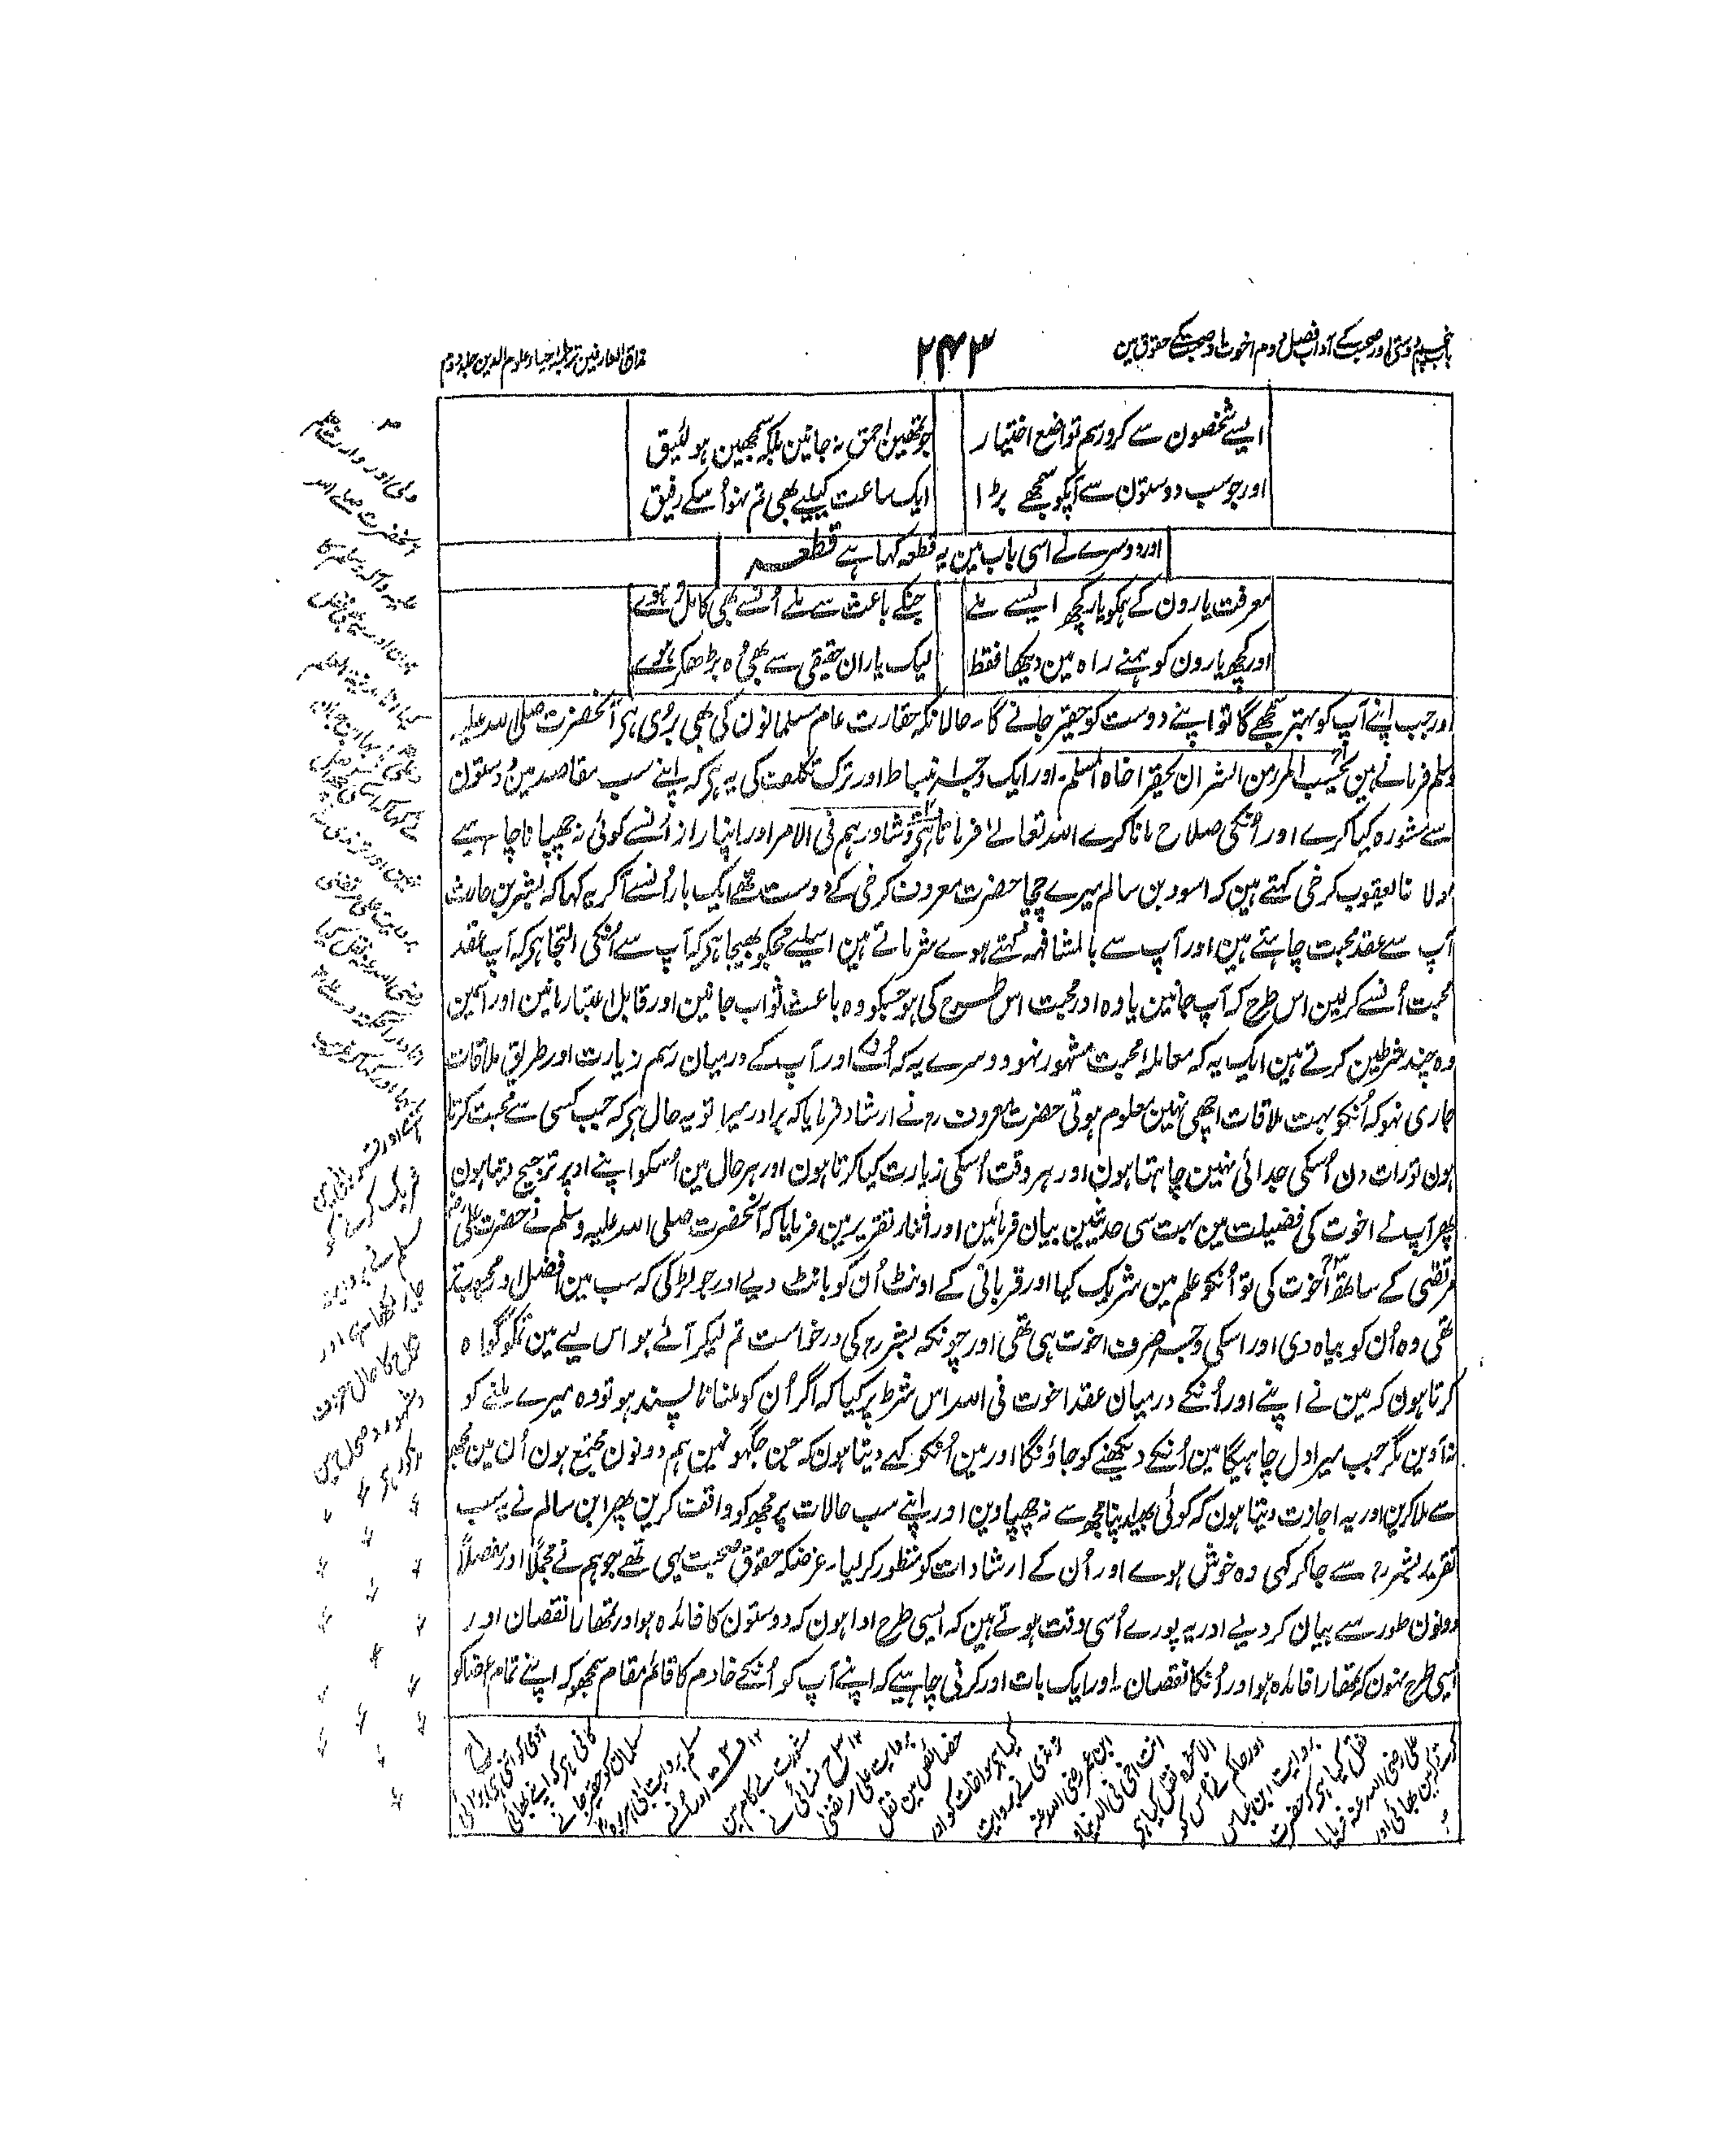 باب پنجم دوستی اور صحبت کے آداب فصل دوم اخوت اور صحبت کے حقوق مین
۲۴۳
مذاق العارفین ترجمہ احیاء علوم الدین جلد دوم
ایسے شخصون سے کرو رسم تواضع اختیار
جو تمھین احمق نہ جانین بلکہ سمجھین ہو لئیق
اور جو سب دوستون سے آپکو سمجھے بڑا
ایک ساعت کیلیے بھی تم نہو اُسکے رفیق
اور دوسرے نے اسی باب مین یہ قطعہ کہا ہے قطعہ
معرفت یارون کے ہمکو یار کچھ ایسے ملے
جنکے باعث سے ملے اُنسے بھی کامل ہوے
اور کچھ یارون کو ہمنے راہ مین دیکھا فقط
لیک یاران حقیقی سے بھی وہ بڑھکر ہوے
اور جب اپنے آپ کو بہتر سمجھے گا تو اپنے دوست کو حقیر جانے گا۔ حالانکہ حقارت عام مسلمانون کی بھی بُری ہی آنحضرت صلی اللہ علیہ
وسلم فرماتے ہین بحسب المرء من الشر ان یحقر اخاہ المسلم۔ اور ایک وجہ انبساط اور ترک تکلف کی یہ ہی کہ اپنے سب مقاصد مین دوستون
سے مشورہ کیا کرے اور اُنکی صلاح مانا کرے اللہ تعالے فرماتا ہی وشاورہم فی الامر اور اپنا راز اُنسے کوئی نہ چھپانا چاہیے
مولانا یعقوب کرخی کہتے ہین کہ اسود بن سالم میرے چچا حضرت معروف کرخی کے دوست تھے ایک بار اُنسے آکر یہ کہا کہ بشر بن حارث
آپ سے عقد محبت چاہتے ہین اور آپ سے بالمشافہہ کہتے ہوے شرماتے ہین اسلیے مجکو بھیجا ہی کہ آپ سے اُنکی التجا ہی کہ آپ عقد
محبت اُنسے کر لین اس طرح کہ آپ جانین یا وہ اور محبت اس طرح کی ہو جسکو وہ باعث ثواب جانین اور قابل اعتبار مانین اور اسمین
وہ چند شرطین کرتے ہین ایک یہ کہ معاملہ محبت مشہور نہو دوسرے یہ کہ اُنکے اور آپ کے درمیان رسم زیارت اور طریق ملاقات
جاری نہو کہ اُنکو بہت ملاقات اچھی نہین معلوم ہوتی حضرت معروف رح نے ارشاد فرمایا کہ برادر میرا تو یہ حال ہی کہ جب کسی سے محبت کرتا
ہون تو رات دن اُسکی جدائی نہین چاہتا ہون اور ہر وقت اُسکی زیارت کیا کرتا ہون اور ہر حال مین اُسکو اپنے اوپر ترجیح دیتا ہون
پھر آپ نے اخوت کی فضیلت مین بہت سی حدیثین بیان فرمائین اور اثنار تقریر مین فرمایا کہ آنحضرت صلی اللہ علیہ وسلم نے حضرت علی
مرتضی کے ساتھ اخوت کی تو اُنکو علم مین شریک کیا اور قربانی کے اونٹ اُن کو بانٹ دیے اور جو لڑکی کہ سب مین افضل اور محبوب تر
تھی وہ اُن کو بیاہ دی اور اسکی وجہ صرف اخوت ہی تھی اور چونکہ بشر رح کی درخواست تم لیکر آئے ہو اس لیے مین تمکو گواہ
کرتا ہون کہ مین نے اپنے اور اُنکے درمیان عقد اخوت فی اللہ اس شرط پر کیا کہ اگر اُن کو ملنا ناپسند ہو تو وہ میرے ملنے کو
نہ آوین مگر جب میرا دل چاہیگا مین اُنکے دیکھنے کو جاؤنگا اور مین اُنکو کہے دیتا ہون کہ جن جگہونمین ہم دونون مجتمع ہون اُن مین مجھ
سے ملا کرین اور یہ اجازت دیتا ہون کہ کوئی بھید اپنا مجھ سے نہ چھپاوین اور اپنے سب حالات پر مجھ کو واقف کرین پھر ابن سالم نے یہ سب
تقریر بشر رح سے جا کر کہی وہ خوش ہوے اور اُن کے ارشادات کو منظور کر لیا۔ غرضکہ حقوق صحبت یہی تھے جو ہم نے مجملاً اور مفصلاً
دونون طور سے بیان کر دیے اور یہ پورے اُسی وقت ہوتے ہین کہ ایسی طرح ادا ہون کہ دوستون کا فائدہ ہو اور تمھارا نقصان اور
ایسی طرح نہون کہ تمھارا فائدہ ہو اور اُنکا نقصان۔ اور ایک بات اور کرنی چاہیے کہ اپنے آپ کو اُنکے خادم کا قائم مقام سمجھو کہ اپنے تمام اعضا کو
آدمی کو اتنی ہی برائی
کافی ہی کہ اپنے بھائی
مسلمان کو حقیر جانے
مسلم بروایت ابی ہریرہ
مشورت لے کام مین
۱۲ ح نسائی نے
بروایت علی مرتضی
خصائص مین نقل
کیا ہی مواخات کو اور
ترمذی نے بروایت
ابن عمر رضی اللہ عنہ
انت اخی فی الدنیا و
الآخرۃ نقل کیا ہی
اور حاکم نے اس کو
بروایت ابن عباس
نقل کیا ہی کہ حضرت
علی رضی اللہ عنہ فرمایا
کرتے کہ مین بھائی اور
ولی اور وارث علم
آنحضرت صلے اللہ
علیہ وآلہ وسلم کا
شریک کرنے کو
مسلم نے بروایت
جابر لکھا ہی اور
نکاح کا حال معروف
و مشہور و صحاح مین
مذکور ہی